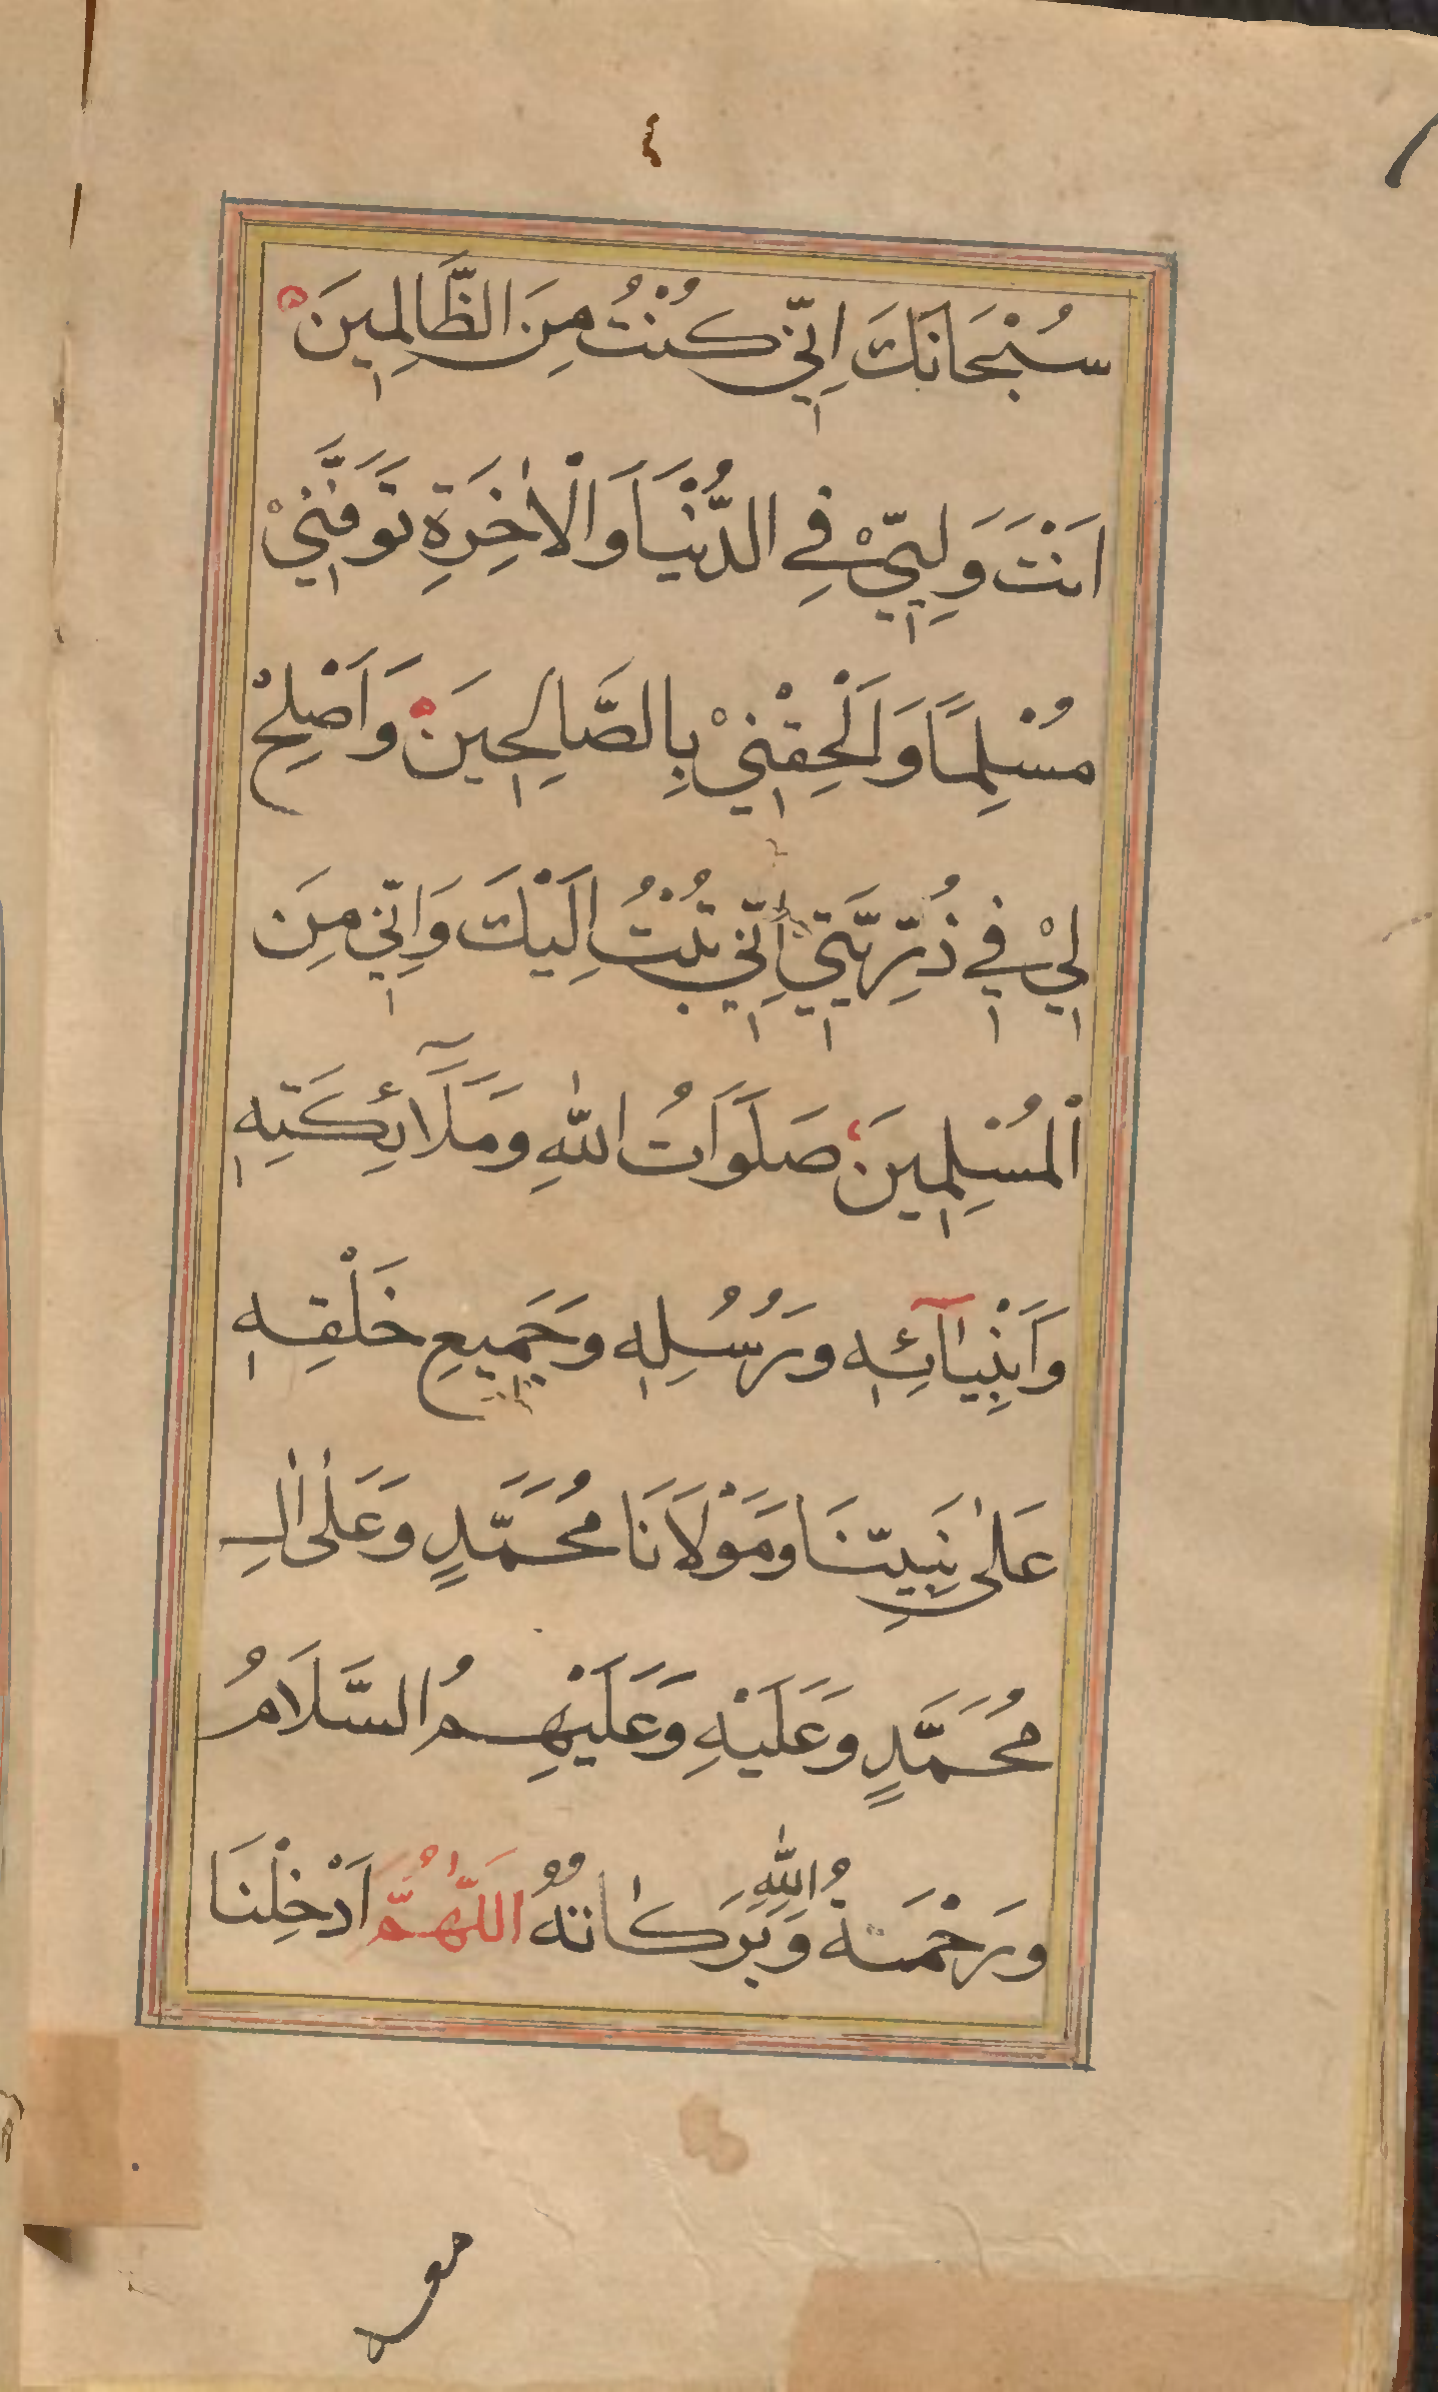 ٤
سُبْحَانَكَ اِنّٖي كُنْتُ مِنَ الظَّالِمٖينَ
اَنْتَ وَلِيّٖيْ فِي الدُّنْيَا وَالْاٰخِرَةِ تَوَفَّنٖيْ
مُسْلِمًا وَاَلْحِقْنٖيْ بِالصَّالِحٖينَ وَاَصْلِحْ
لٖيْ فٖي ذُرِّيَّتٖي اِنّٖي تُبْتُ اِلَيْكَ وَاِنّٖي مِنَ
الْمُسْلِمٖينَ صَلَوَاتُ اللّٰهِ وَمَلَآئِكَتِهٖ
وَاَنْبِيَآئِهٖ وَرُسُلِهٖ وَجَمٖيعِ خَلْقِهٖ
عَلٰى نَبِيِّنَا وَمَوْلَانَا مُحَمَّدٍ وَعَلٰى اٰلِ
مُحَمَّدٍ وَعَلَيْهِ وَعَلَيْهِمُ السَّلَامُ
وَرَحْمَةُ اللّٰهِ وَبَرَكَاتُهُ اَللّٰهُمَّ اَدْخِلْنَا